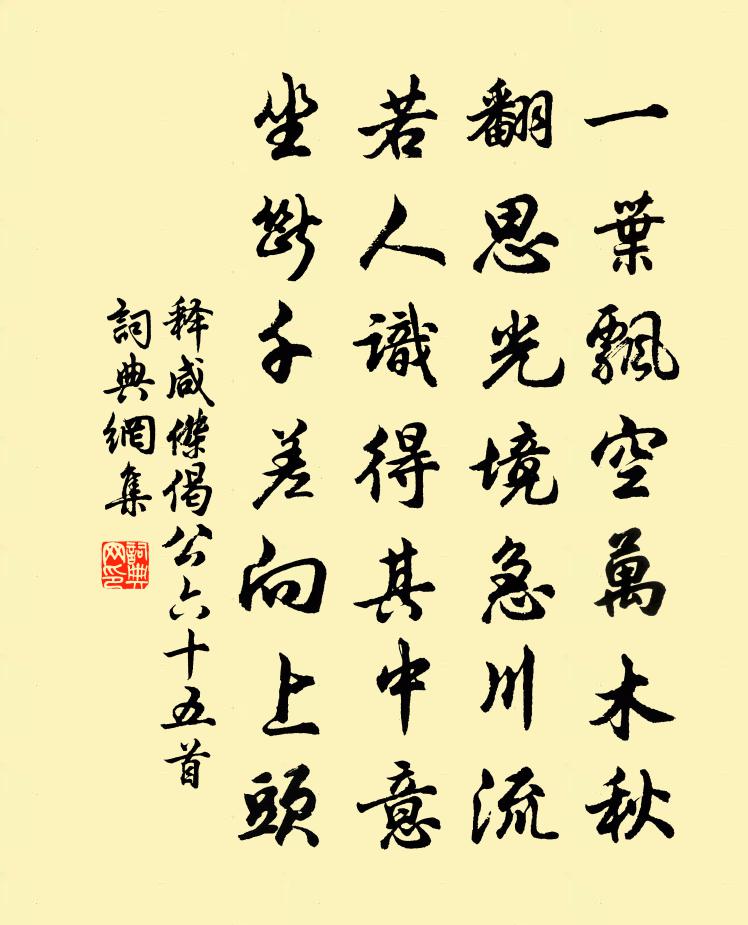 一葉飄空萬木秋
翻思光境急川流
若人識得其中意
坐斷千差向上頭
释咸傑偈公六十五首
詞典網集
詞典网印